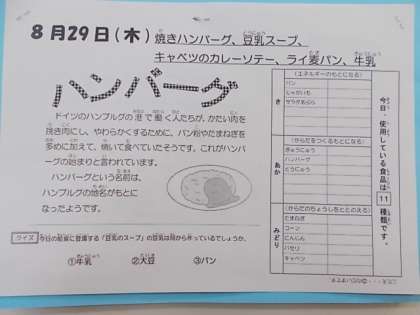 8月29日(木) 焼きハンバーグ、豆乳スープ、
キャベツのカレーソテー、ライ麦パン、牛乳
ハンバーグ
ドイツのハンブルグの港で働く人たちが、かたい肉を
挽き肉にし、やわらかくするために、パン粉やたまねぎを
多めに加えて、焼いて食べていたそうです。これがハンバ
ーグの始まりと言われています。
ハンバーグという名前は、
ハンブルグの地名がもとに
なったようです。
クイズ 今日の給食に登場する「豆乳のスープ」の豆乳は何から作っているでしょうか。
①牛乳 ②大豆 ③パン
今日、使用している食品は 11 種類です。
き
(エネルギーのもとになる)
パン
じゃがいも
サラダあぶら
あか
(からだをつくるもとになる)
ぎゅうにゅう
ハンバーグ
とうにゅう
みどり
(からだのちょうしをととのえる)
たまねぎ
コーン
にんじん
パセリ
キャベツ